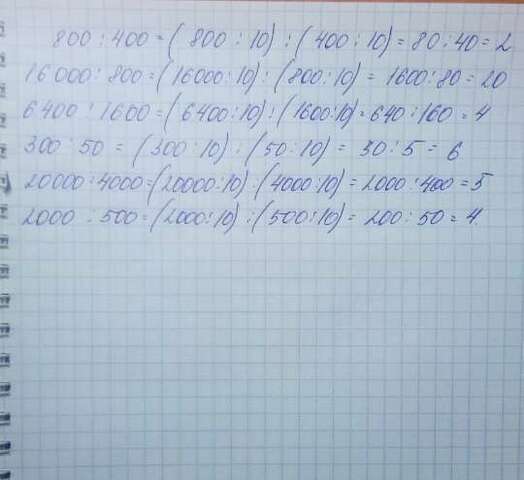 800 : 400 = (800 : 10) : (400 : 10) = 80 : 40 = 2
16000 : 800 = (16000 : 10) : (800 : 10) = 1600 : 80 = 20
6400 : 1600 = (6400 : 10) : (1600 : 10) = 640 : 160 = 4
300 : 50 = (300 : 10) : (50 : 10) = 30 : 5 = 6
20000 : 4000 = (20000 : 10) : (4000 : 10) = 2000 : 400 = 5
2000 : 500 = (2000 : 10) : (500 : 10) = 200 : 50 = 4.